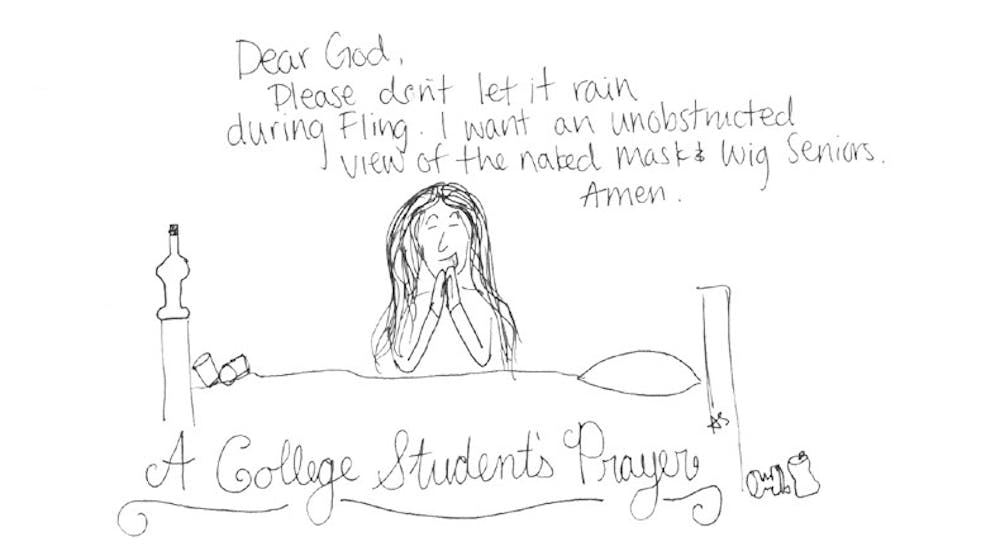 Dear God,
Please don't let it rain
during Fling. I want an unobstructed
view of the naked mask & Wig Seniors.
Amen.
AS
A College Student's Prayer